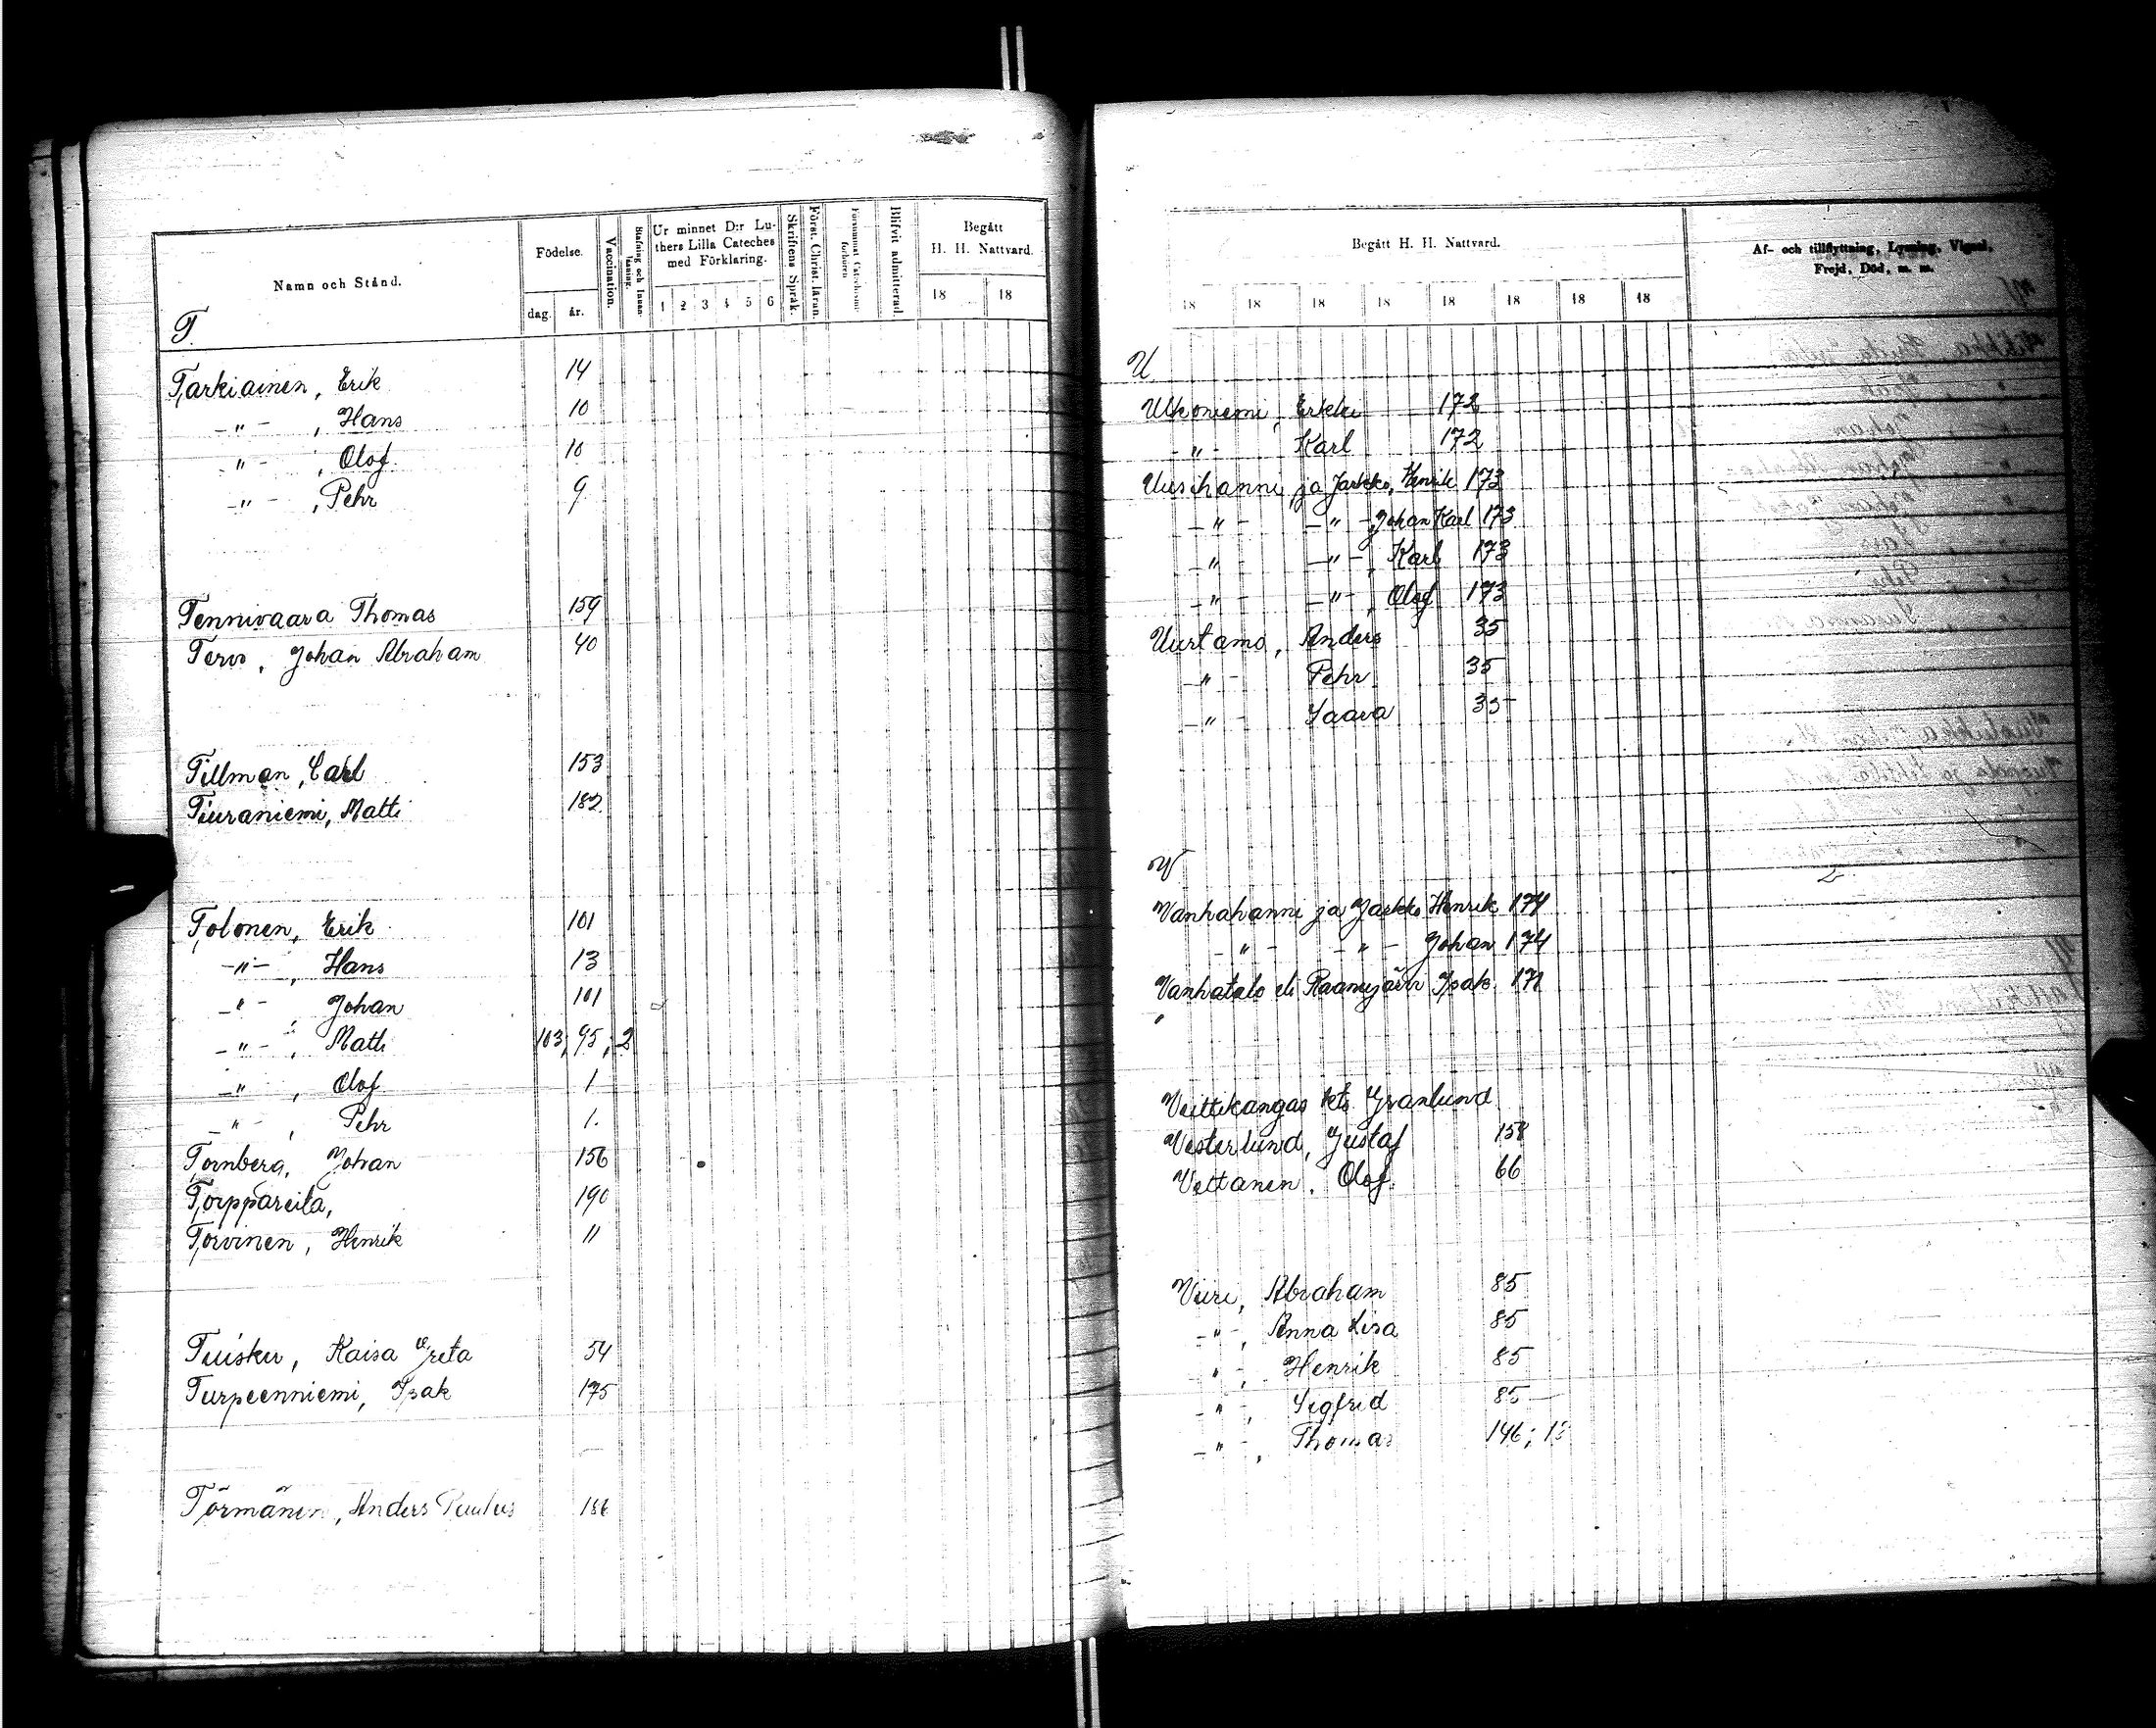 Namn och Stånd.
Födelse.
dag. år.
Vaccination.
Stafning och Innanläsning.
Ur minnet D:r Luthers Lilla Cateches med Förklaring.
1 2 3 4 5 6
Skriftens Språk.
Först. Christ. läran.
Försummat Catechismi förhören
Blifvit admitterad
Begått
H. H. Nattvard.
18 18
T.
Tarkiainen, Erik 14
-"- , Hans 10
-"- , Olof 10
-"- , Pehr 9
Tennivaara Thomas 159
Tervo, Johan Abraham 40
Tillman, Carl 153
Tiuraniemi, Matti 182
Tolonen, Erik 101
-"- , Hans 13
-"- , Johan 101
-"- , Matti 103, 95, 2
-"- , Olof 1
-"- , Pehr 1.
Tornberg, Johan 156
Torppareita, 190
Torvinen, Henrik 11
Tuisku, Kaisa Greta 54
Turpeenniemi, Isak 175
Törmänen, Anders Paulus 186
Begått H. H. Nattvard.
18 18 18 18 18 18 18 18
Af- och tillflyttning, Lysning, Vigsel,
Frejd, Död, m. m.
U
Ukoniemi, Erkki 172
-"- Karl 172
Uusihanni ja Jarkko, Henrik 173
-"- -"- , Johan Karl 173
-"- -"- , Karl 173
-"- -"- , Olof 173
Uurtamo, Anders 35
-"- Pehr 35
-"- Saara 35
W
Vanhahanni ja Jarkko Henrik 174
-"- -"- Johan 174
Vanhatalo eli Raanujärvi Isak 171
Veittikangas kts Granlund
Vesterlund, Gustaf 158
Vettanen, Olof 66
Viiri, Abraham 85
-"- , Anna Lisa 85
-"- , Henrik 85
-"- , Sigfrid 85
-"- , Thomas 146;